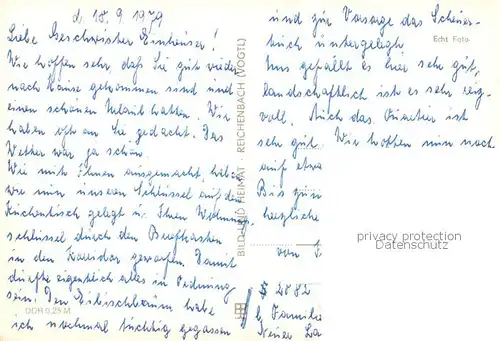 d. 18.9.1979
Liebe Geschwister Einhäuser!
Wir hoffen sehr daß Sie gut wieder
nach Hause gekommen sind und
einen schönen Urlaub hatten. Wir
haben oft an Sie gedacht. Das
Wetter war ja schön.
Wie mit Ihnen ausgemacht, haben
wir nun unseren Schlüssel auf den
Küchentisch gelegt u. Ihren Wohnungs
schlüssel durch den Briefkasten
in den Korridor geworfen. Damit
dürfte eigentlich alles in Ordnung
sein! Den Eibischbaum habe
ich nochmal tüchtig gegossen
DDR 0,25 M
BILD UND HEIMAT · REICHENBACH (VOGTL)
und zur Vorsorge das Scheuer-
tuch untergelegt.
Echt Foto
Uns gefällt es hier sehr gut,
landschaftlich ist es sehr reiz-
voll. Auch das Quartier ist
sehr gut. Wir hoffen nun noch
auf etwa
Bis zum
herzliche
von
privacy protection
Datenschutz
2882
b. Familie